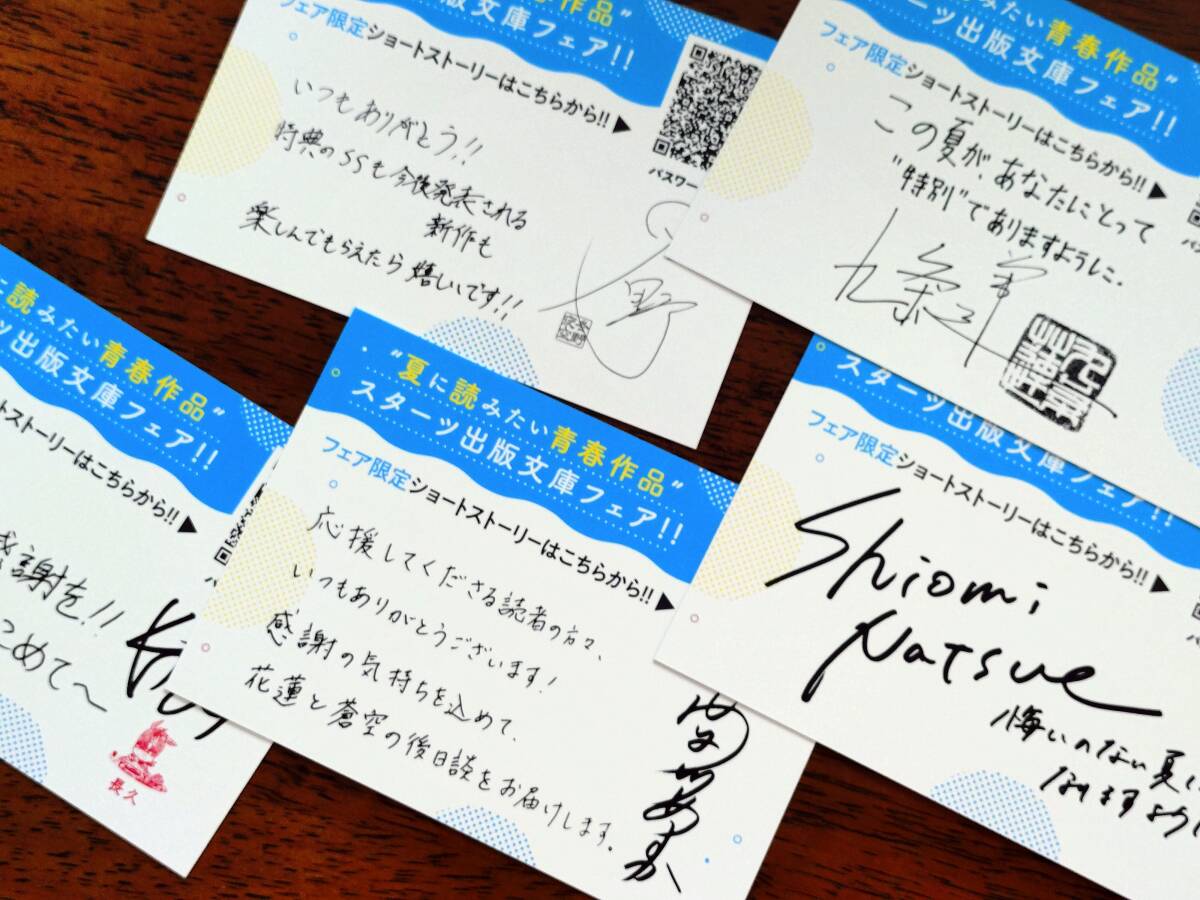 青春作品"
版文庫フェア!!
フェア限定ショートストーリーはこちらから!!▶
パスワー
いつもありがとう!!
特典のSSも今後発表される
新作も
楽しんでもらえたら嬉しいです!!
みたい青春作品"
スターツ出版文庫フェア!!
フェア限定ショートストーリーはこちらから!!▶
この夏が、あなたにとって
"特別"でありますように。
に読みたい青春作品"
ツ出版文庫フェア!!
ョートストーリーはこちらから!!▶
感謝を!!
こめて〜
長久
"夏に読みたい青春作品"
スターツ出版文庫フェア!!
フェア限定ショートストーリーはこちらから!!▶
応援してくださる読者の方々、
いつもありがとうございます!
感謝の気持ちを込めて、
花蓮と蒼空の後日談をお届けします。
スターツ出版文庫フェア!!
フェア限定ショートストーリーはこちらから!!▶
Shiomi
Natsue
悔いのない夏に
なりますよう